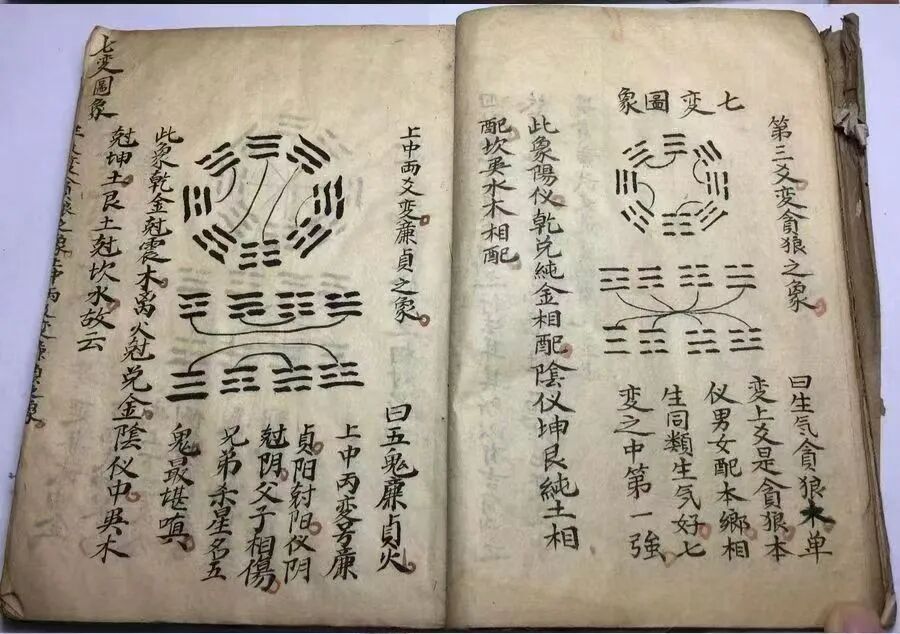 七变圖象
第三爻变貪狼之象
曰生气貪狼木单
变上爻是貪狼本
仪男女配本鄉相
生同類生气好七
变之中第一強
此象陽仪乾兑純金相配陰仪坤艮純土相
配坎巽水木相配
上中两爻变廉貞之象
曰五鬼廉貞火
上中丙变号廉
貞阳尅阳仪阴
尅阴父子相傷
兄弟杀星名五
鬼最堪嗔
此象乾金尅震木离火尅兑金陰仪中巽木
尅坤土艮土尅坎水故云
七变圖象